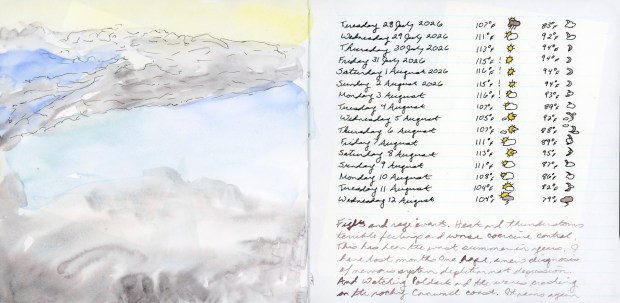 Tuesday 28 July 2026 107°F 83°F
Wednesday 29 July 2026 111°F 92°F
Thursday 30 July 2026 113°F 94°F
Friday 31 July 2026 115°F ! 94°F
Saturday 1 August 2026 116°F ! 94°F
Sunday 2 August 2026 115°F ! 94°F
Monday 3 August 116°F ! 93°F
Tuesday 4 August 107°F 89°F
Wednesday 5 August 105°F 93°F
Thursday 6 August 107°F 88°F
Friday 7 August 111°F 89°F
Saturday 8 August 113°F 95°F
Sunday 9 August 111°F 87°F
Monday 10 August 108°F 86°F
Tuesday 11 August 104°F 82°F
Wednesday 12 August 104°F 79°F
Fights and rage events. Heat and thunderstorms
terrible feelings and worse coercive control
This has been the worst summer in years. I
have last months One hope, a new diagnosis
of nervous system depletion not depression.
And Watching Poldark and the waves crashing
on the rocky Cornwall coast. again